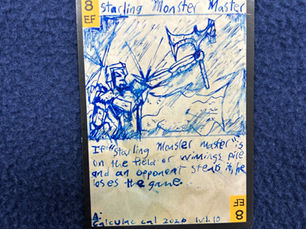 8
EF
starling Monster Master
If "starling Monster master" is
on the field or winnings pile
and an opponent steals it, he
loses the game.
2020
8
EF